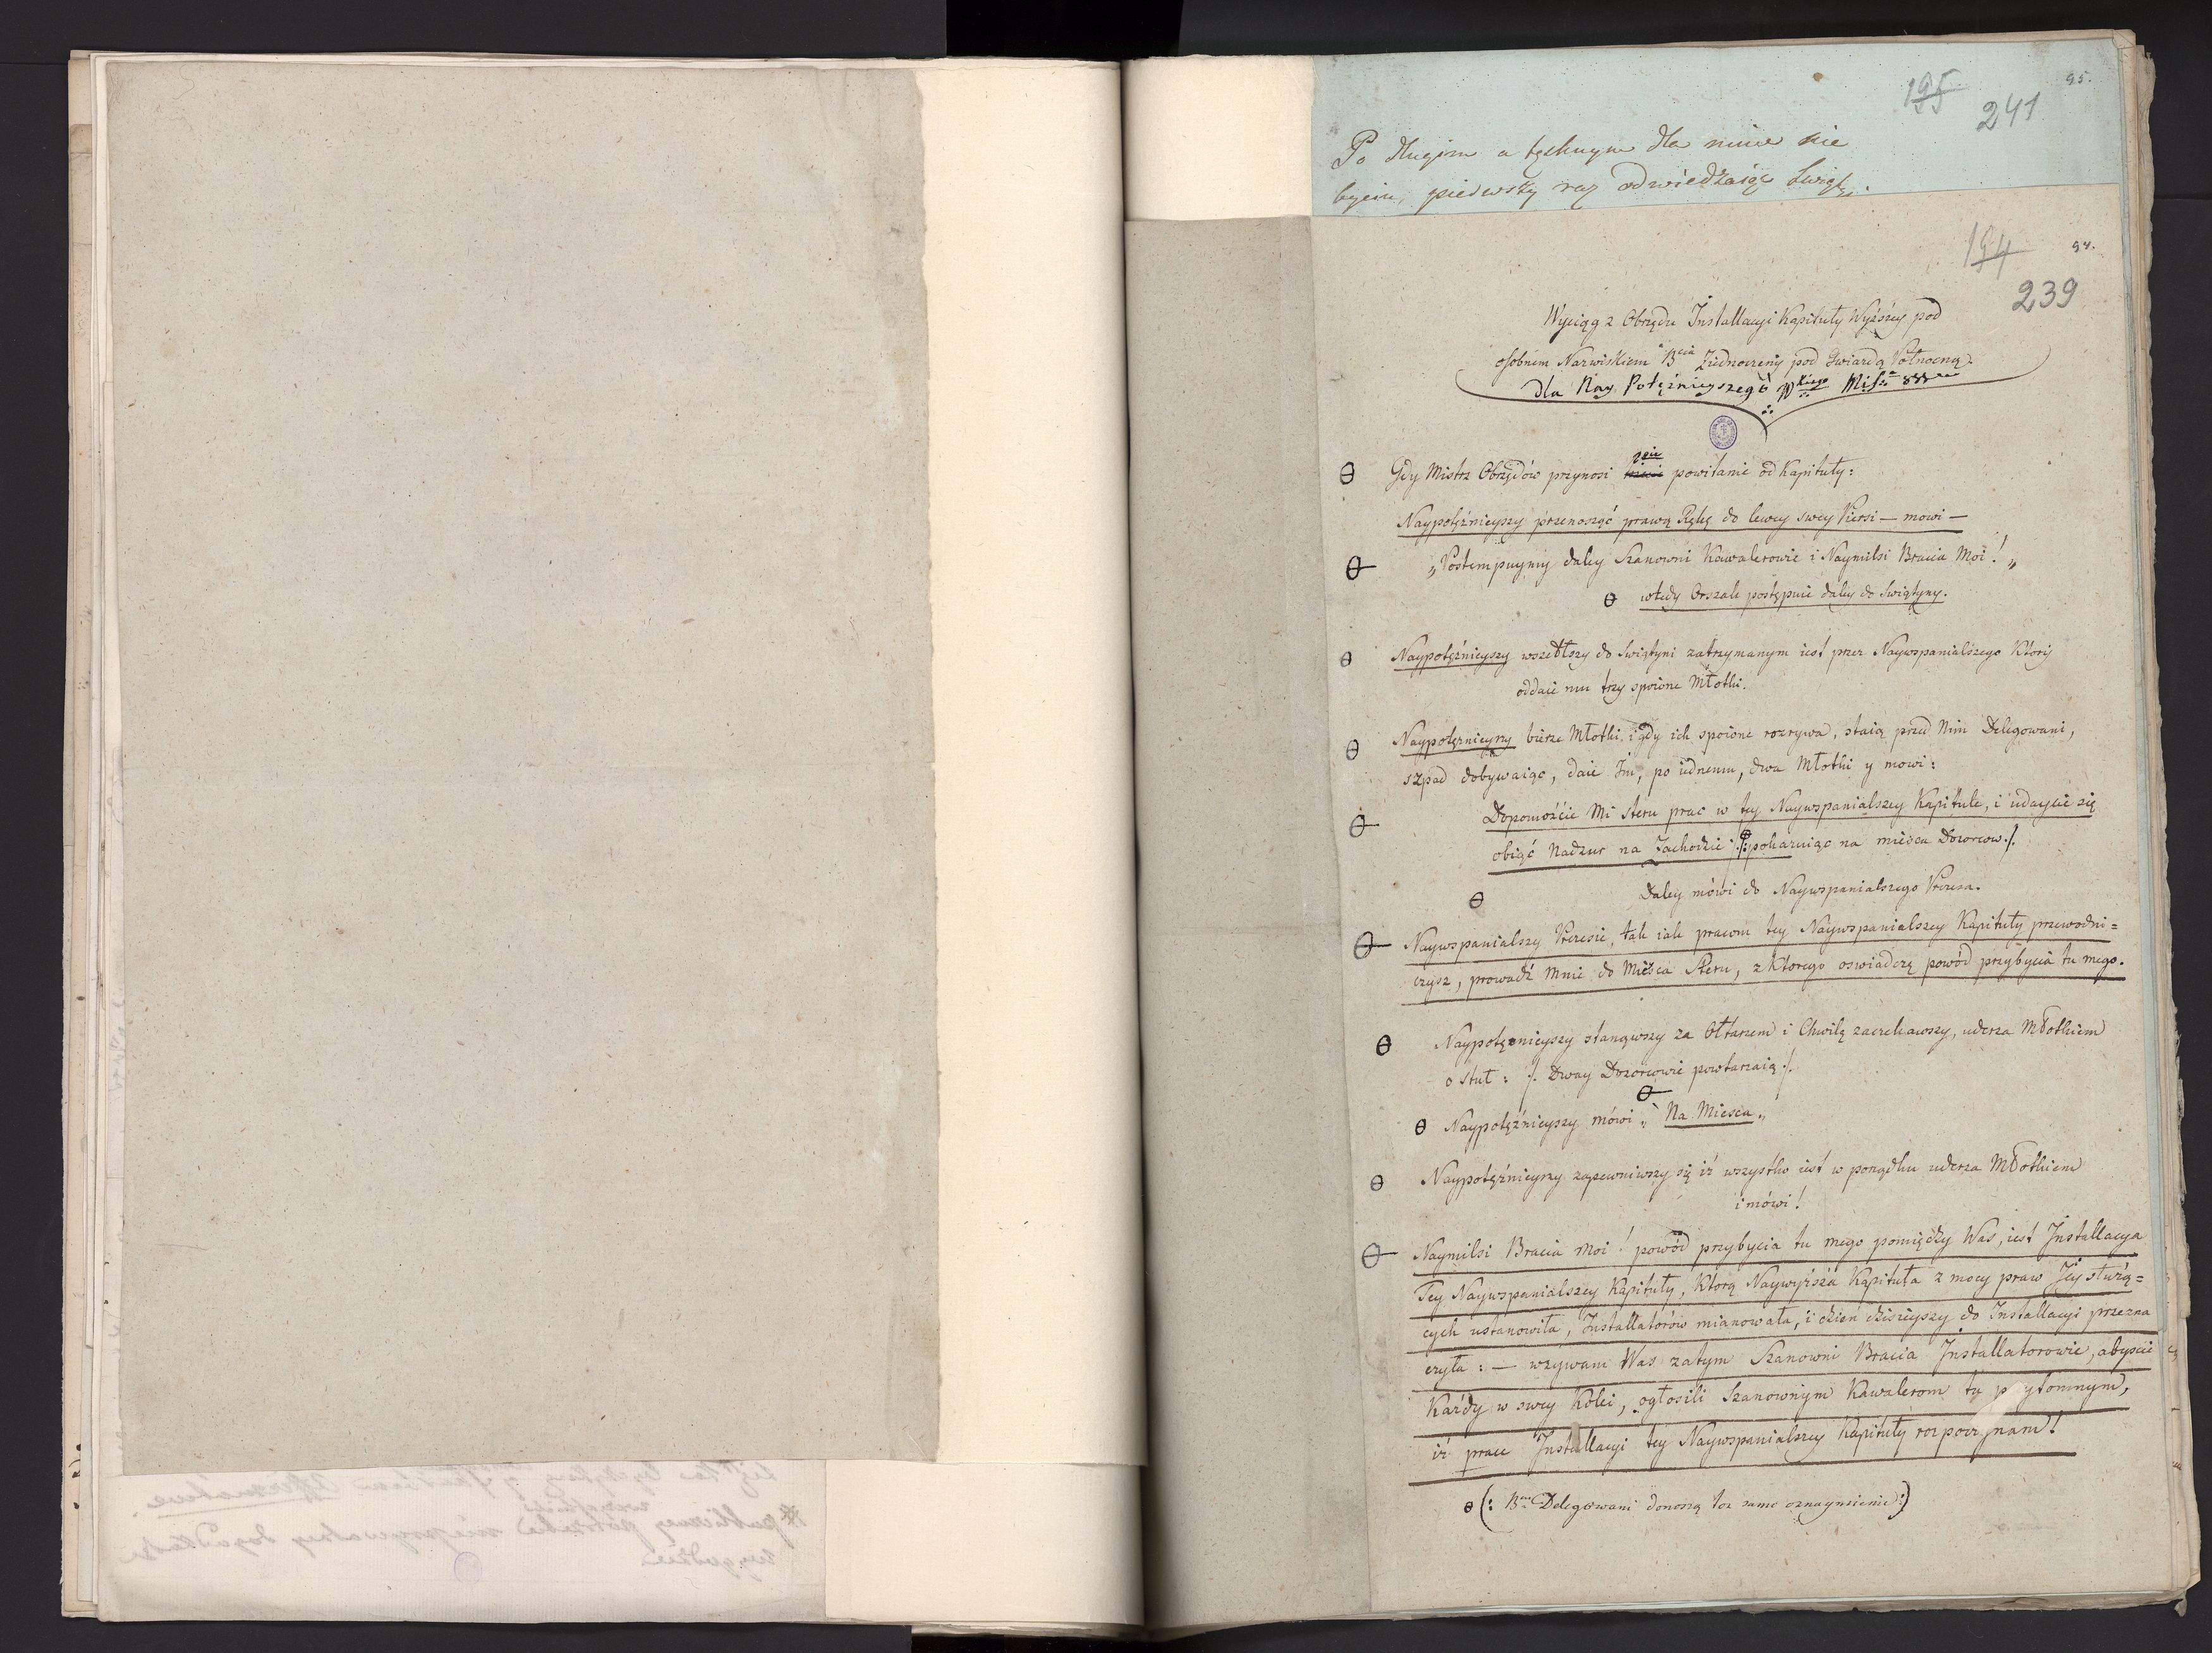 195
241
95.
Po długim a tęsknym dla mnie nie
byciu, pierwszy raz odwiedzaiąc Swiąty.
194
94.
239
Wyciąg z Obrzędu Installacyi Kapituły Wyższey pod
osobnem Nazwiskiem "Bcia Ziednoczeny pod Gwiazdą Połnocną.
dla Nay Potężnieyszego Wkiego Mis
Gdy Mistrz Obrzędów przynosi powitanie od Kapituły:
Naypotężnieyszy przenosząć prawą Rękę do lewey swey Piersi — mowi —
„Postempuymy daley Szanowni Kawalerowie i Naymilsi Bracia Moi! „
wtedy Orszak postępuie daley do Swiątyny.
Naypotężnieyszy wszedłszy do Swiątyni zatrzymanym iest przez Naywspanialszego Ktory
oddaie mu trzy spoione Młotki.
Naypotężnieyszy bierze Młotki, i gdy ich spoione rozrywa, staią przed Nim Delegowani,
szpad dobywaiąc, daie Im, po iednemu, dwa Młotki y mowi:
Dopomożcie Mi steru prac w tey Naywspanialszey Kapitule, i udaycie się
obiąć Nadzur na Zachodzie ./: pokazuiąc na mieisca Dozorcow./.
Daley mówi do Naywspanialszego Prezesa.
Naywspanialszy Prezesie, tak iak pracom tey Naywspanialszey Kapituły przewodni=
czysz, prowadź mnie do Mieisca Steru, z Ktorego oswiadczę powód przybycia tu mego.
Naypotężnieyszy stanąwszy za Ołtarzem i Chwilę zaczekawszy, uderza Młotkiem
o stuł: /. Dway Dozorcowie powtarzaią./.
Naypotężnieyszy mówi „ Na Miesca „
Naypotężnieyszy zapewniwszy się iż wszystko iest w porządku uderza Młotkiem
i mówi!
Naymilsi Bracia Moi! powód przybycia tu mego pomiędzy Was, iest Installacya
Tey Naywspanialszey Kapituły, Ktorą Naywyższa Kapituła z mocy praw Jey służą=
cych ustanowiła, Installatorów mianowała, i dzień dzisieyszy do Installacyi przezna
czyła: — wzywam Was zatym Szanowni Bracia Installatorowie, abyscie
Każdy w swey Kolei, ogłosili Szanownym Kawalerom tu przytomnym,
iż prace Installacyi tey Naywspanialszey Kapituły rozpoczynam!
(: Bcia Delegowani donoszą toz samo oznaymienie :)